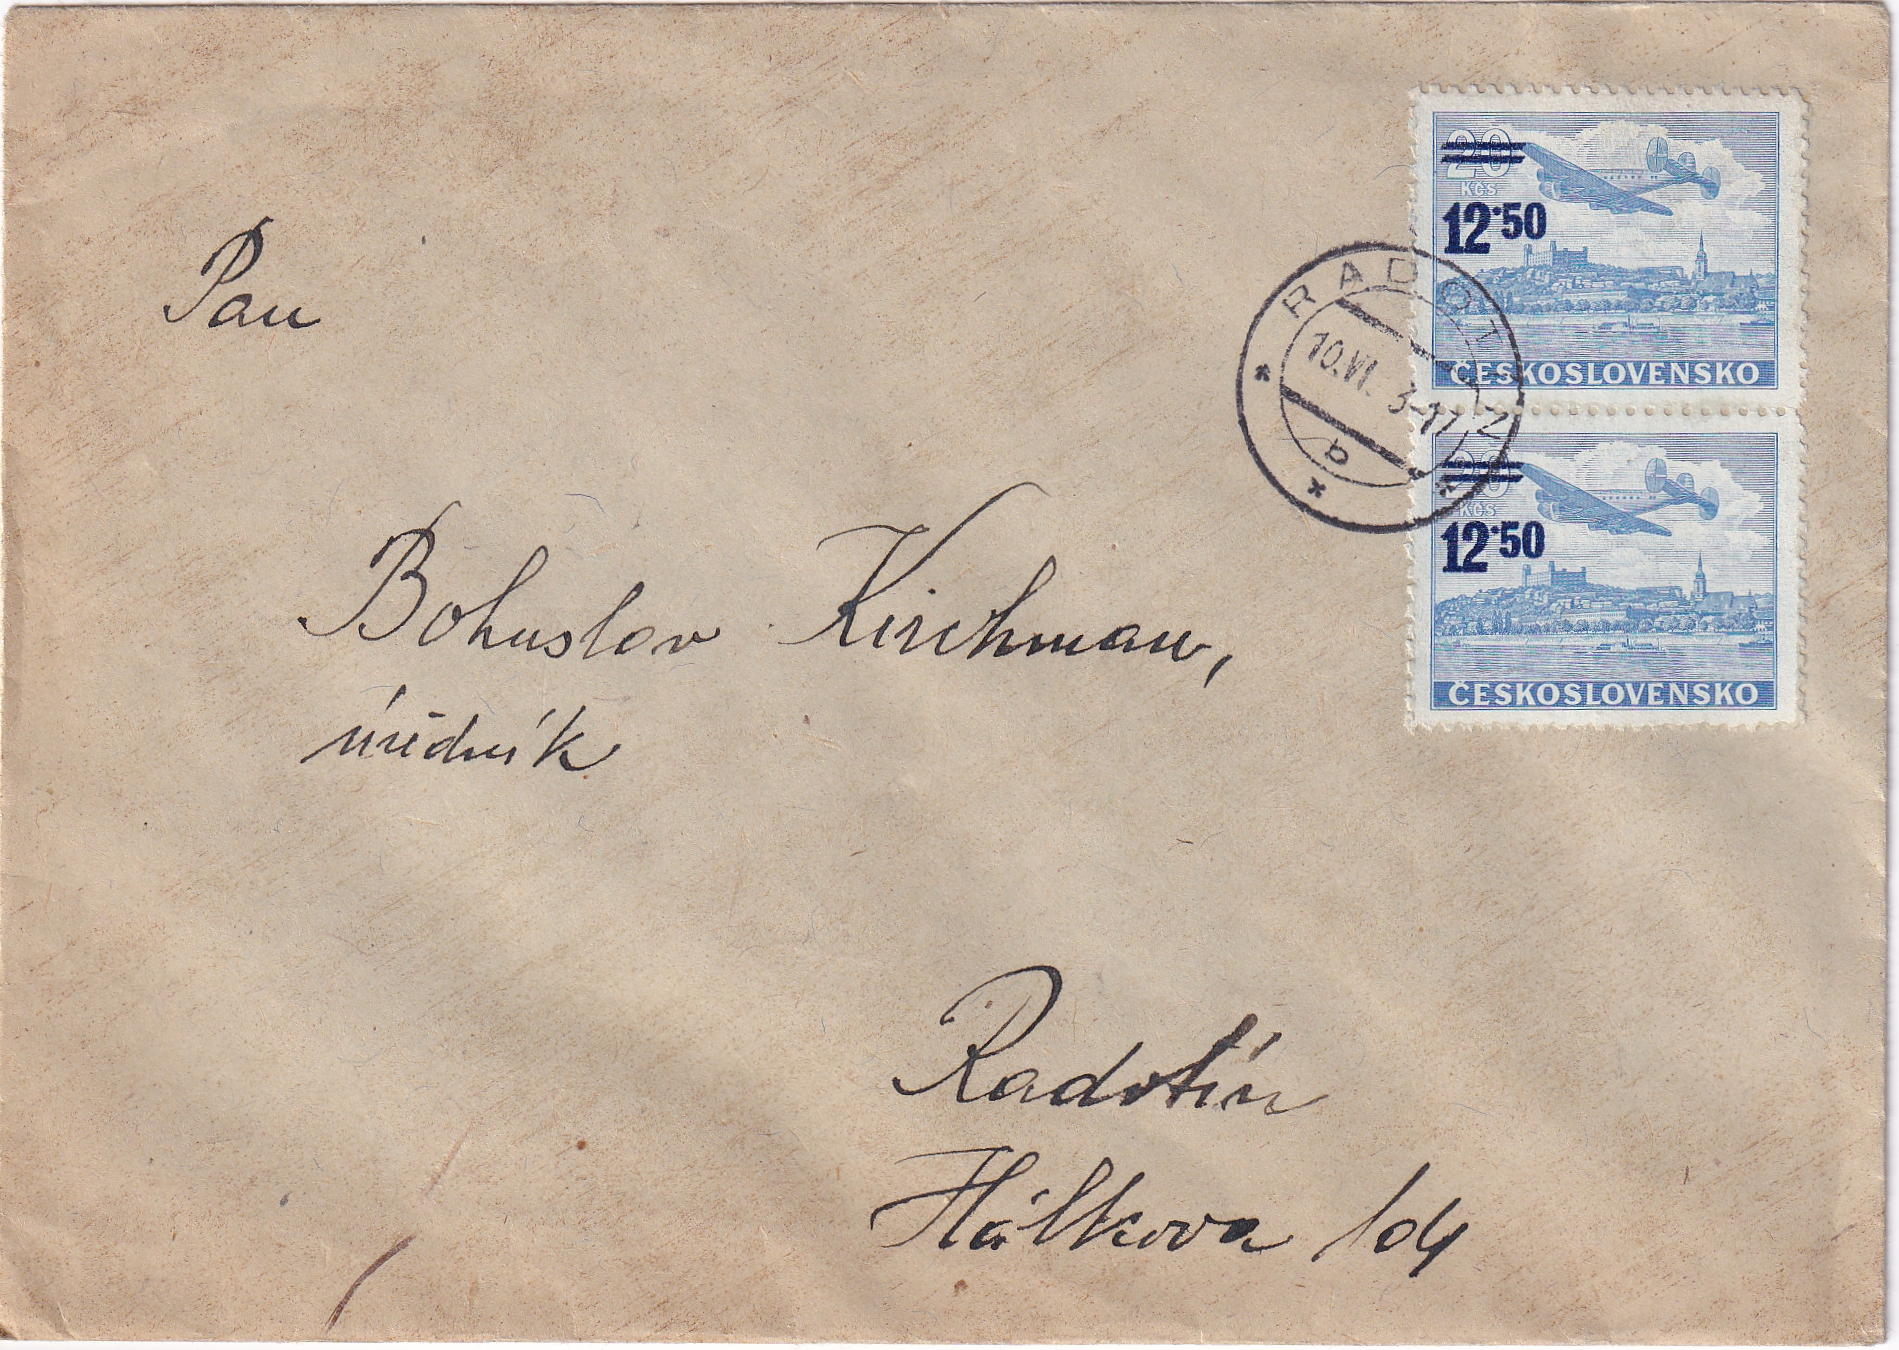 20
KČS
12·50
ČESKOSLOVENSKO
RADOTÍN
10.VI. 3-17
b
20
KČS
12·50
ČESKOSLOVENSKO
Pan
Bohuslav Kirchman,
úředník
Radotín
Hálkova 104